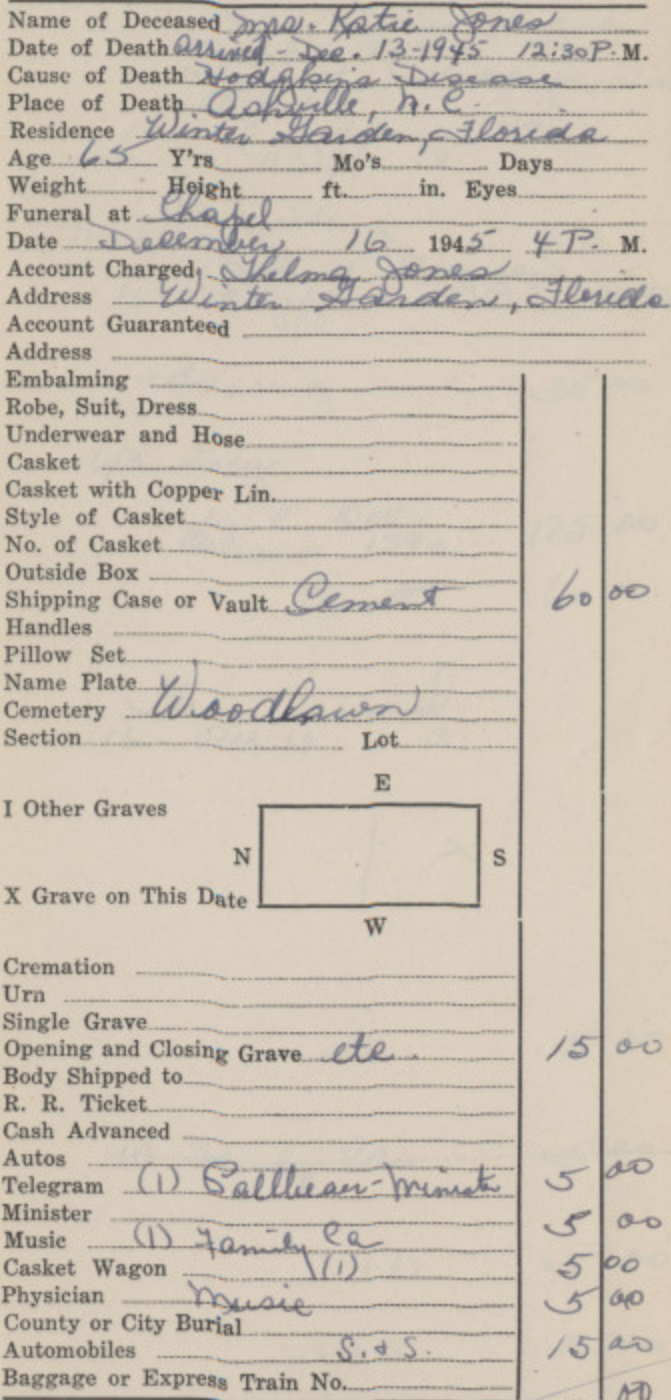 Name of Deceased Mrs. Katie Jones
Date of Death Arrived - Dec. 13-1945 12:30 P. M.
Cause of Death Hodgkins Disease
Place of Death Ashville, N.C.
Residence Winter Garden, Florida
Age 65 Y'rs Mo's Days
Weight Height ft. in. Eyes
Funeral at Chapel
Date December 16 1945 4 P. M.
Account Charged Thelma Jones
Address Winter Garden, Florida
Account Guaranteed
Address
Embalming
Robe, Suit, Dress
Underwear and Hose
Casket
Casket with Copper Lin.
Style of Casket
No. of Casket
Outside Box
Shipping Case or Vault Cement 60 00
Handles
Pillow Set
Name Plate
Cemetery Woodlawn
Section Lot
E
I Other Graves
N S
X Grave on This Date
W
Cremation
Urn
Single Grave
Opening and Closing Grave etc. 15 00
Body Shipped to
R. R. Ticket
Cash Advanced
Autos
Telegram (1) Pallbear-Minist 5 00
Minister
Music (1) Family Ca 5 00
Casket Wagon (1) 5 00
Physician Music 5 00
County or City Burial
Automobiles S. & S. 15 00
Baggage or Express Train No.